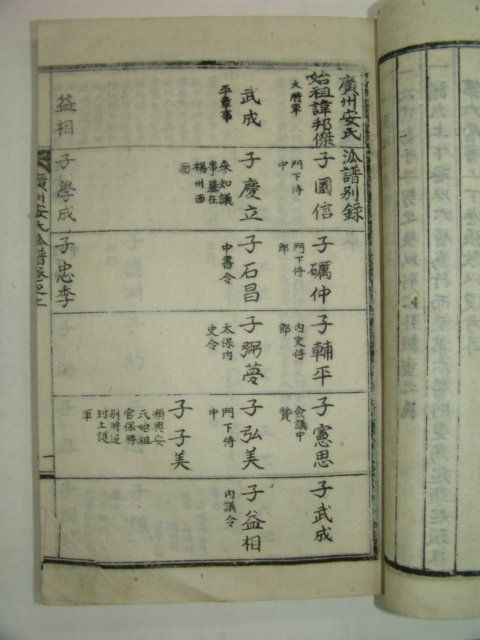 廣州安氏派譜別錄
始祖諱邦傑
太將軍
子國信
門下侍
中
子礪仲
門下侍
郎
子輔平
內史侍
郎
子憲思
僉議中
贊
子武成
武成
平章事
子慶立
參知議
事墓在
楊州西
面
子石昌
中書令
子弼夢
太保內
史令
子弘美
門下侍
中
子益相
內議令
子子美
順興安
氏始祖
官保勝
別將追
封上護
軍
益相
子學成
子忠李
廣州安氏派譜卷之上